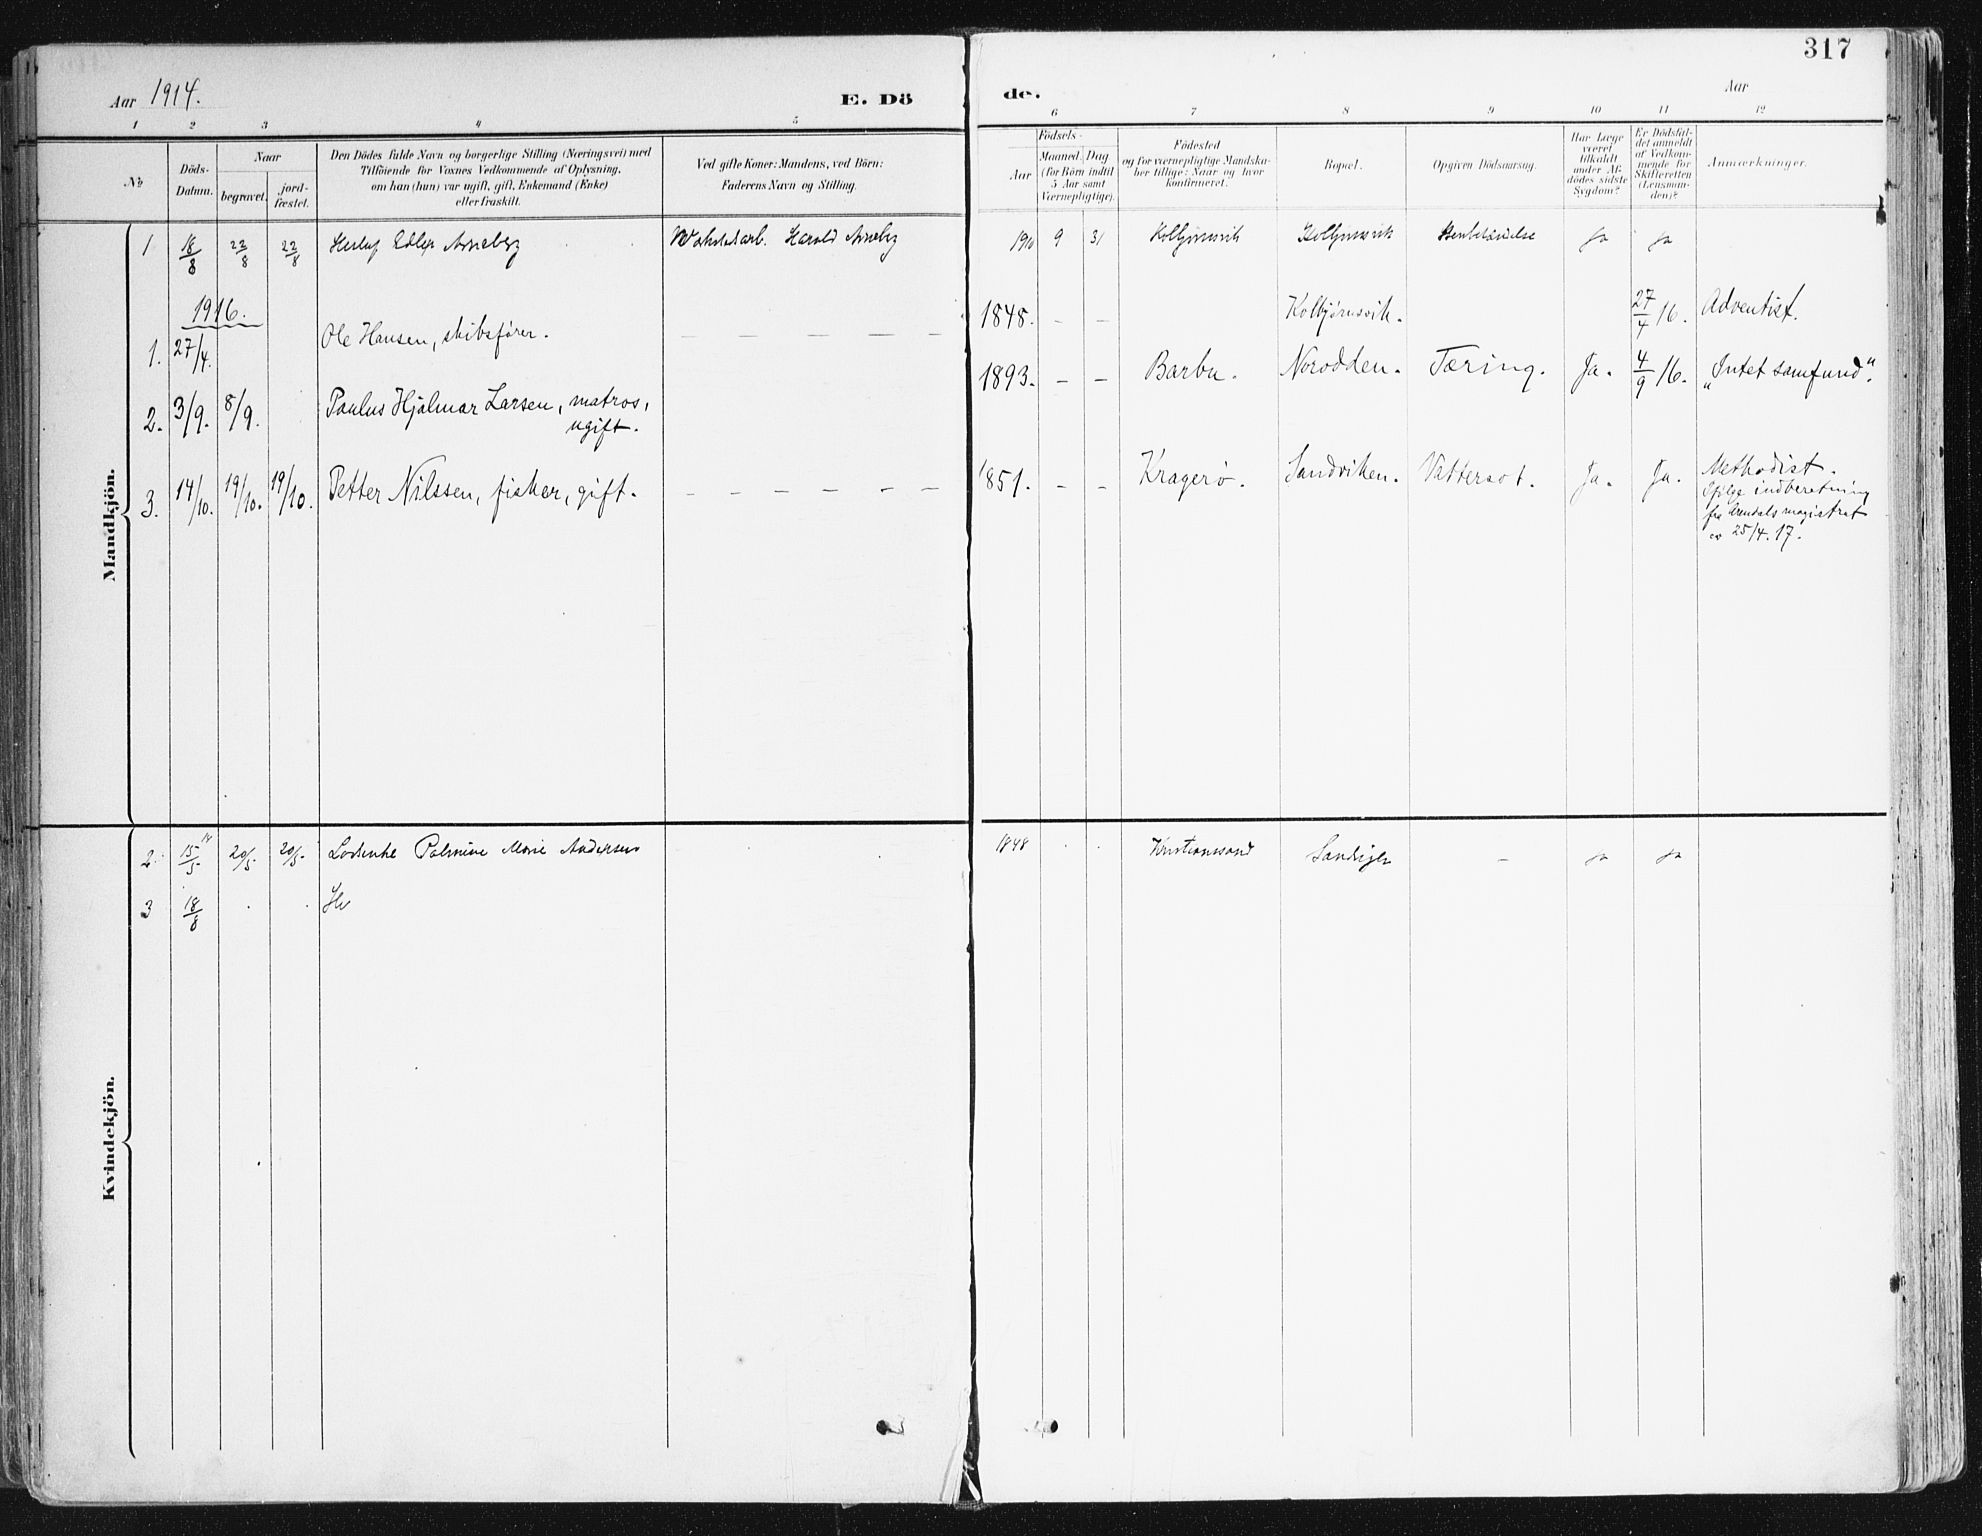 317
Aar 1914.
E. Dö
de.
Aar
1 2 3 4 5 6 7 8 9 10 11 12
No
Döds-
Datum.
Naar
begravet.
jord-
fæstet.
Den Dödes fulde Navn og borgerlige Stilling (Næringsvei) med
Tilföiende for Voxnes Vedkommende af Oplysning,
om han (hun) var ugift, gift, Enkemand (Enke)
eller fraskilt.
Ved gifte Koner: Mandens, ved Börn:
Faderens Navn og Stilling.
Födsels-
Aar
Maaned. Dag
(for Börn indtil
5 Aar samt
Værnepligtige).
Födested
og for værnepligtige Mandska-
ber tillige: Naar og hvor
konfirmeret.
Bopæl.
Opgiven Dödsaarsag.
Har Læge
været
tilkaldt
under Af-
dödes sidste
Sygdom?
Er Dödsfal-
det anmeldt
af Vedkom-
mende for
Skifteretten
(Lensman-
den)?
Anmærkninger.
Mandkjön.
1 18/8 22/8 22/8 Arneberg Harald Arneberg 1910 9 31 Kolbjørnsvik Kolbjørnsvik ja ja
1916.
1. 27/4. Ole Hansen, skibsfører. — — — — — — 1848. - - Kolbjørnsvik. 27/4 16. Adventist.
2. 3/9. 8/9. Paulus Hjalmar Larsen, matros,
ugift.
1893. - - Barbu. Norodden. Tæring. Ja. 4/9 16. "Intet samfund".
3. 14/10. 19/10. 19/10. Petter Nilssen, fisker, gift. — — — — — — 1851. - - Kragerø. Sandviken. Vattersot. Ja. Ja. Methodist.
Ifølge indberetning
fra Arendals magistrat
av 25/4. 17.
Kvindekjön.
2. 15/5 14 20/5 20/5 Palmine Marie Andersen 1848 Kristianssand Sandvigen - ja ja
3 18/8